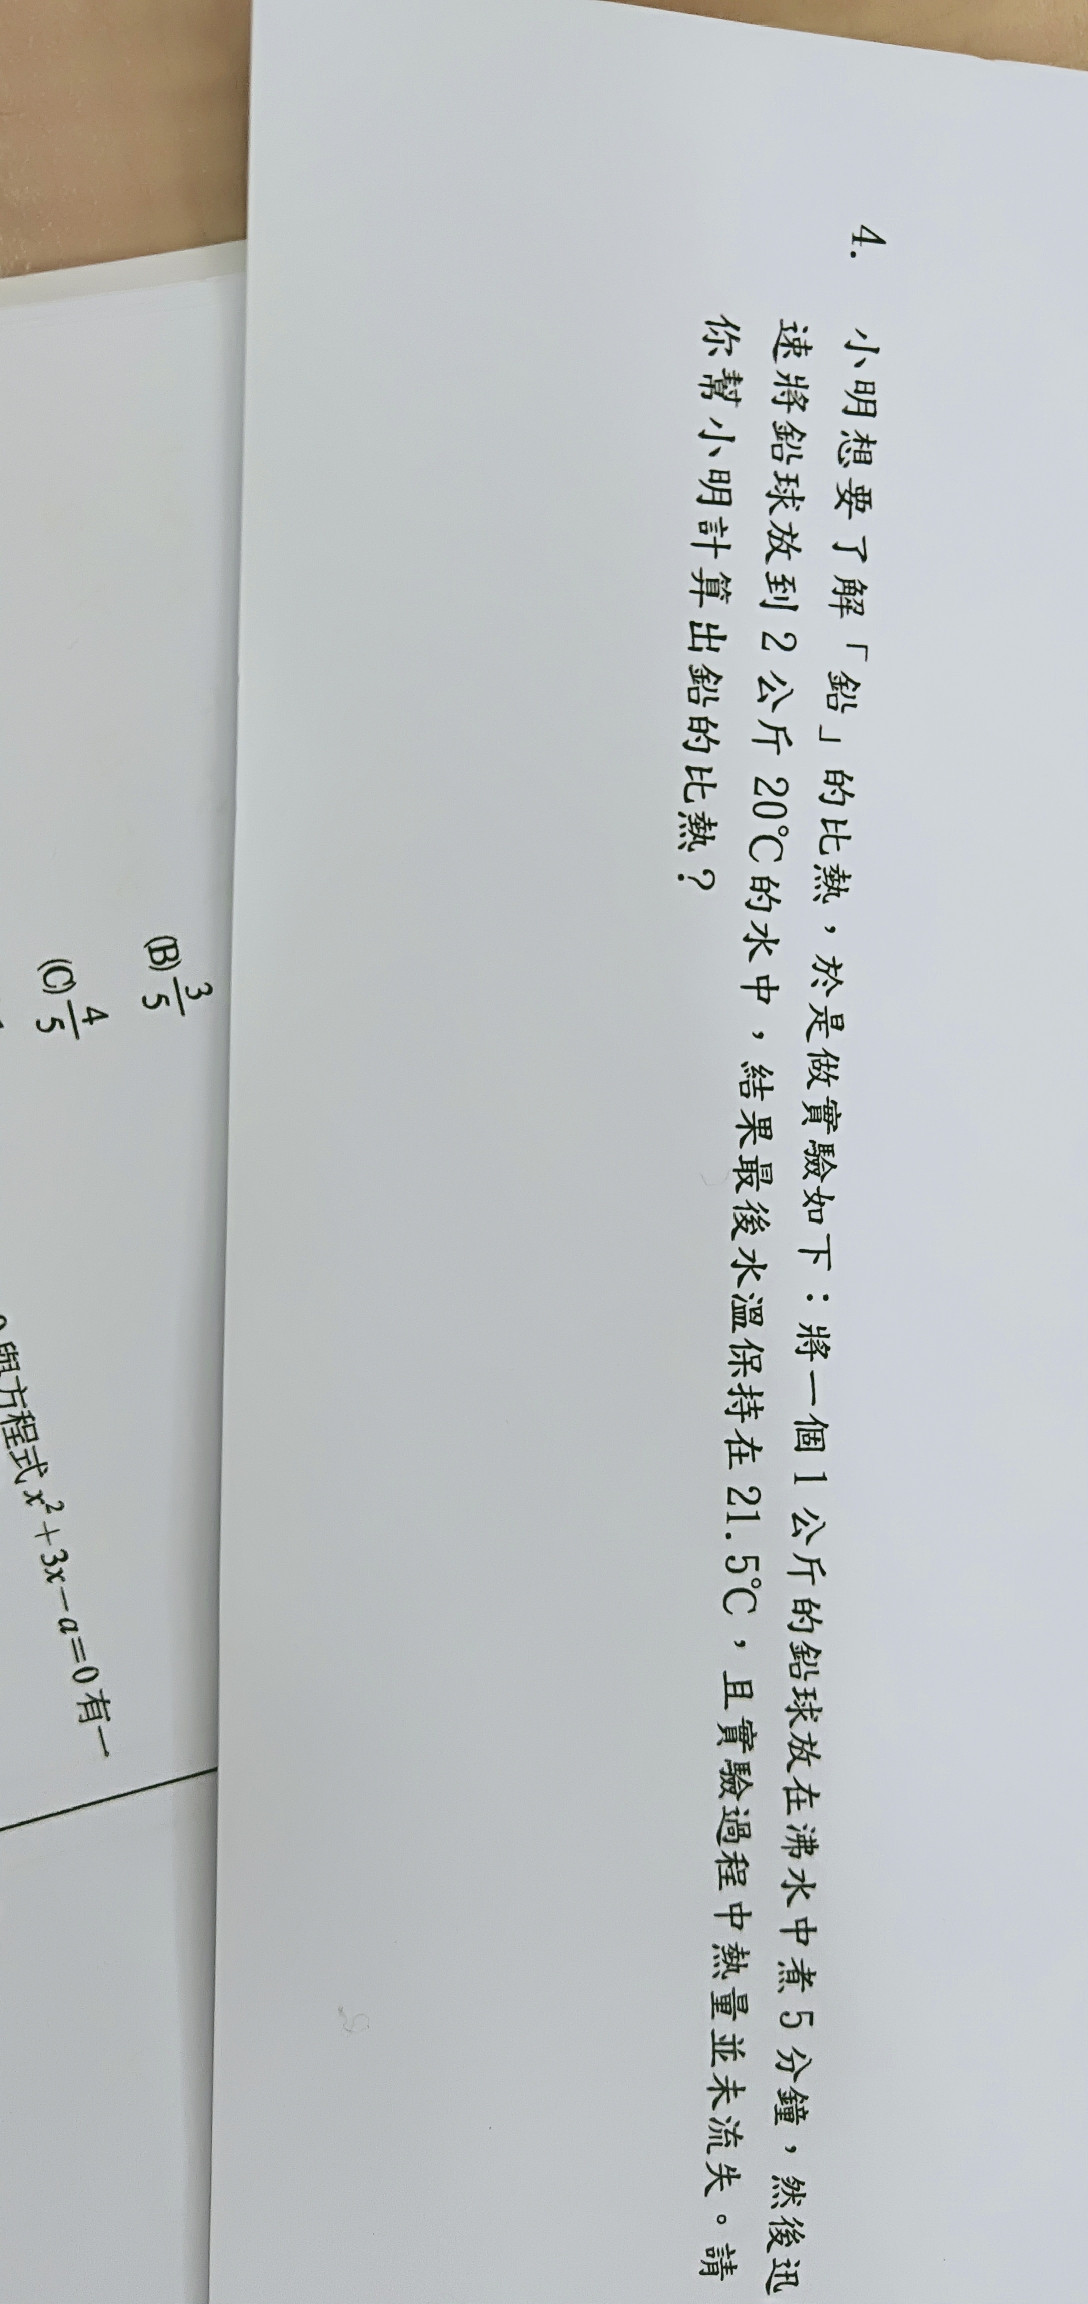 4. 小明想要了解「鉛」的比熱，於是做實驗如下：將一個1公斤的鉛球放在沸水中煮5分鐘，然後迅
速將鉛球放到2公斤20℃的水中，結果最後水溫保持在21.5℃，且實驗過程中熱量並未流失。請
你幫小明計算出鉛的比熱？
(B) 3/5
(C) 4/5
與方程式x²+3x−a=0有一